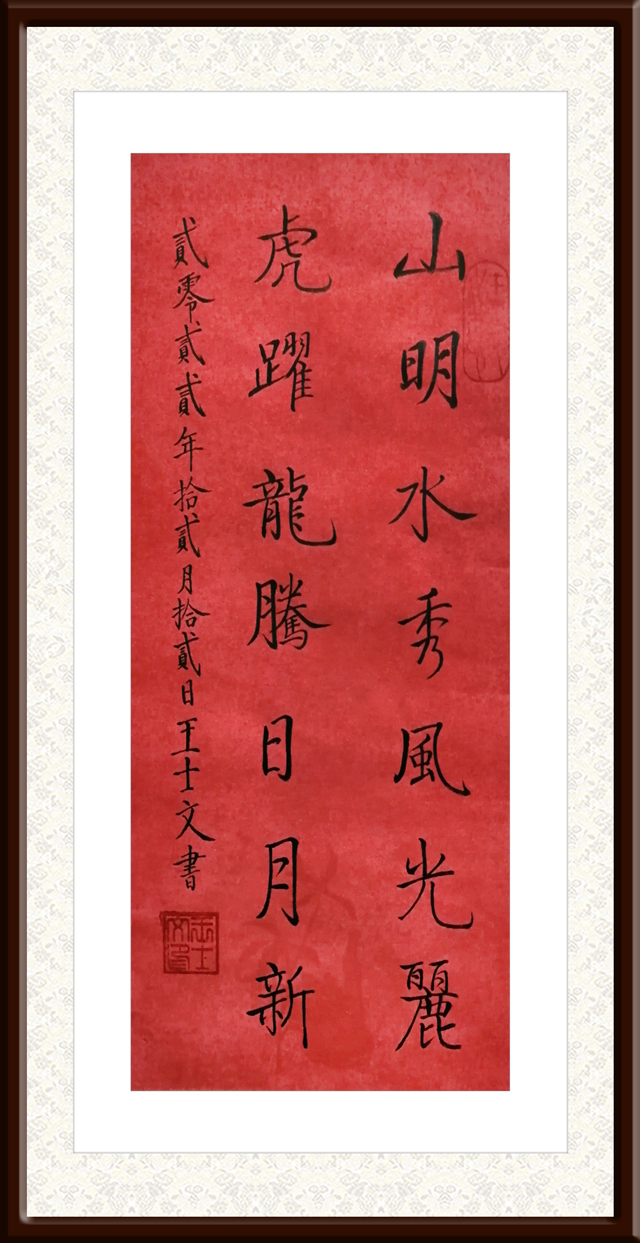 山明水秀風光麗
虎躍龍騰日月新
貳零貳貳年拾貳月拾貳日王士文書
王士文印